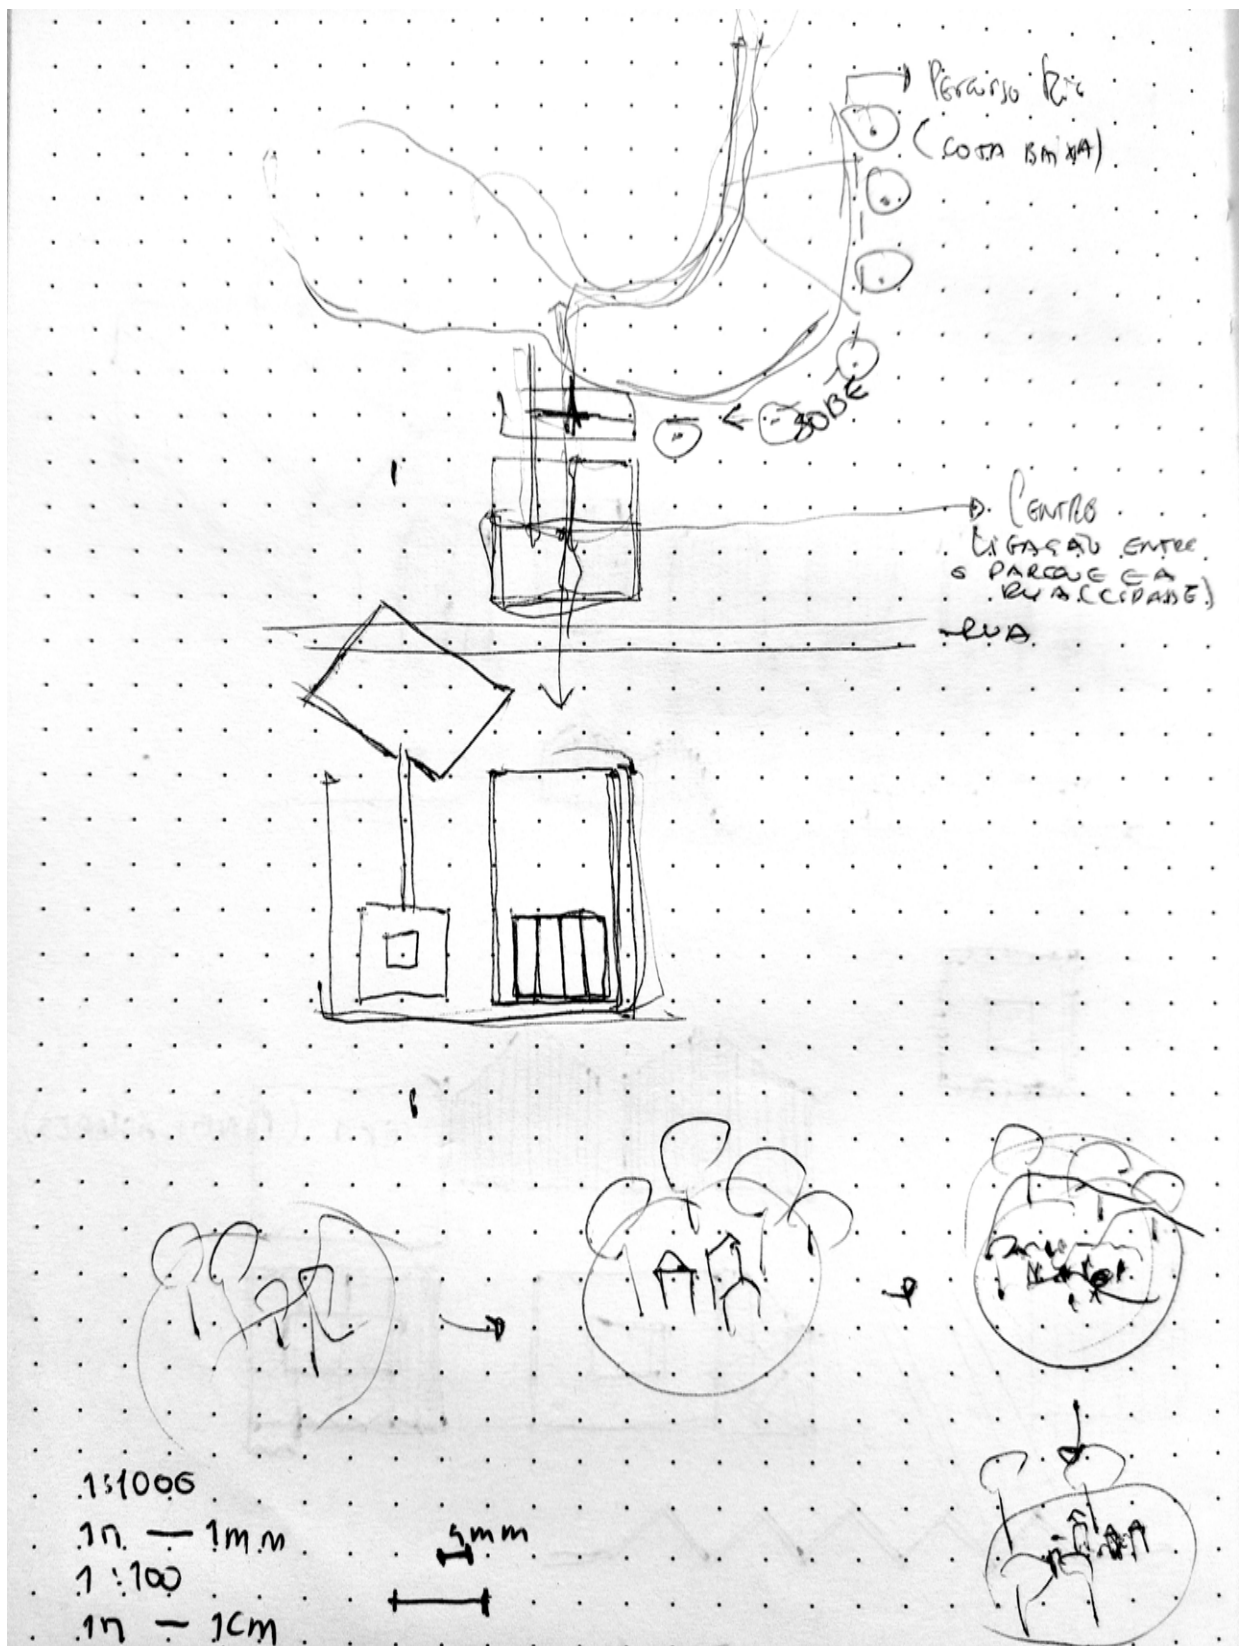 Percurso Rio
(COTA BAIXA)
SOBE
CENTRO
LIGAÇÃO ENTRE
O PARQUE E A
RUA (CIDADE)
RUA
1:1000
1m — 1mm
1:100
1m — 1cm
4mm